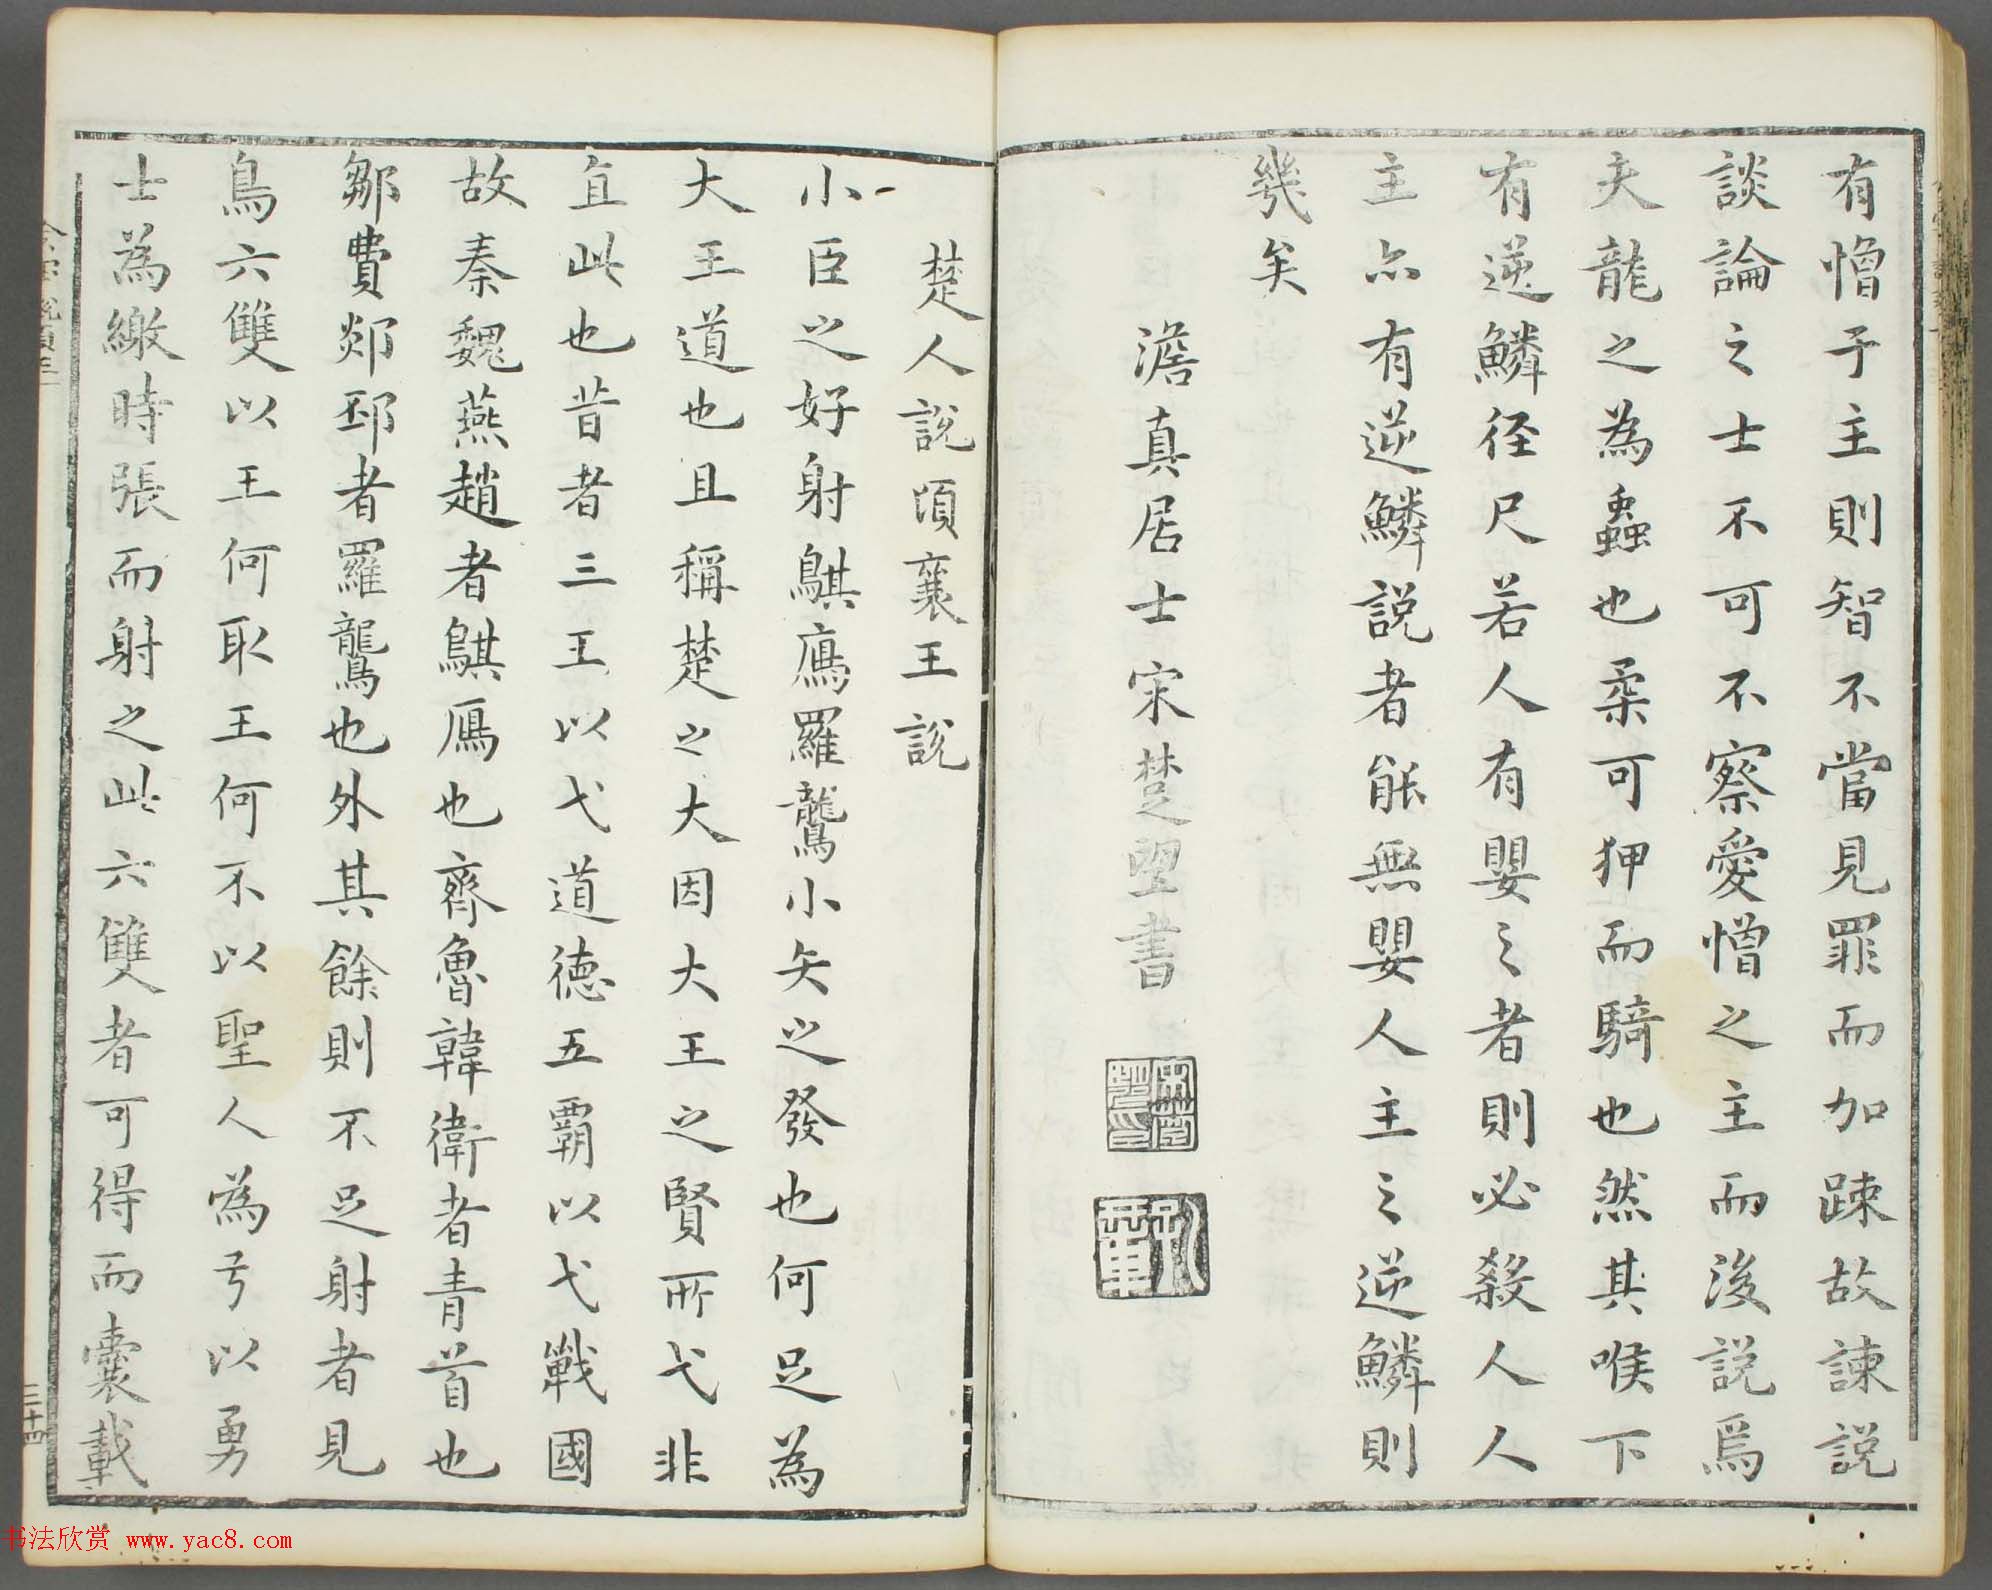 有憎于主則智不當見罪而加踈故諫説
談論之士不可不察愛憎之主而後説焉
夫龍之為蟲也柔可狎而騎也然其喉下
有逆鱗径尺若人有嬰之者則必殺人人
主亦有逆鱗説者能無嬰人主之逆鱗則
幾矣
澹真居士宋楚望書
楚人説頃襄王説
小臣之好射鶀鴈羅鸗小矢之發也何足為
大王道也且稱楚之大因大王之賢所弋非
直此也昔者三王以弋道德五霸以弋戰國
故秦魏燕趙者鶀鴈也齊魯韓衛者青首也
鄒費郯邳者羅鸗也外其餘則不足射者見
鳥六雙以王何取王何不以聖人為弓以勇
士為繳時張而射之此六雙者可得而囊載
三十四
书法欣赏 www.yac8.com